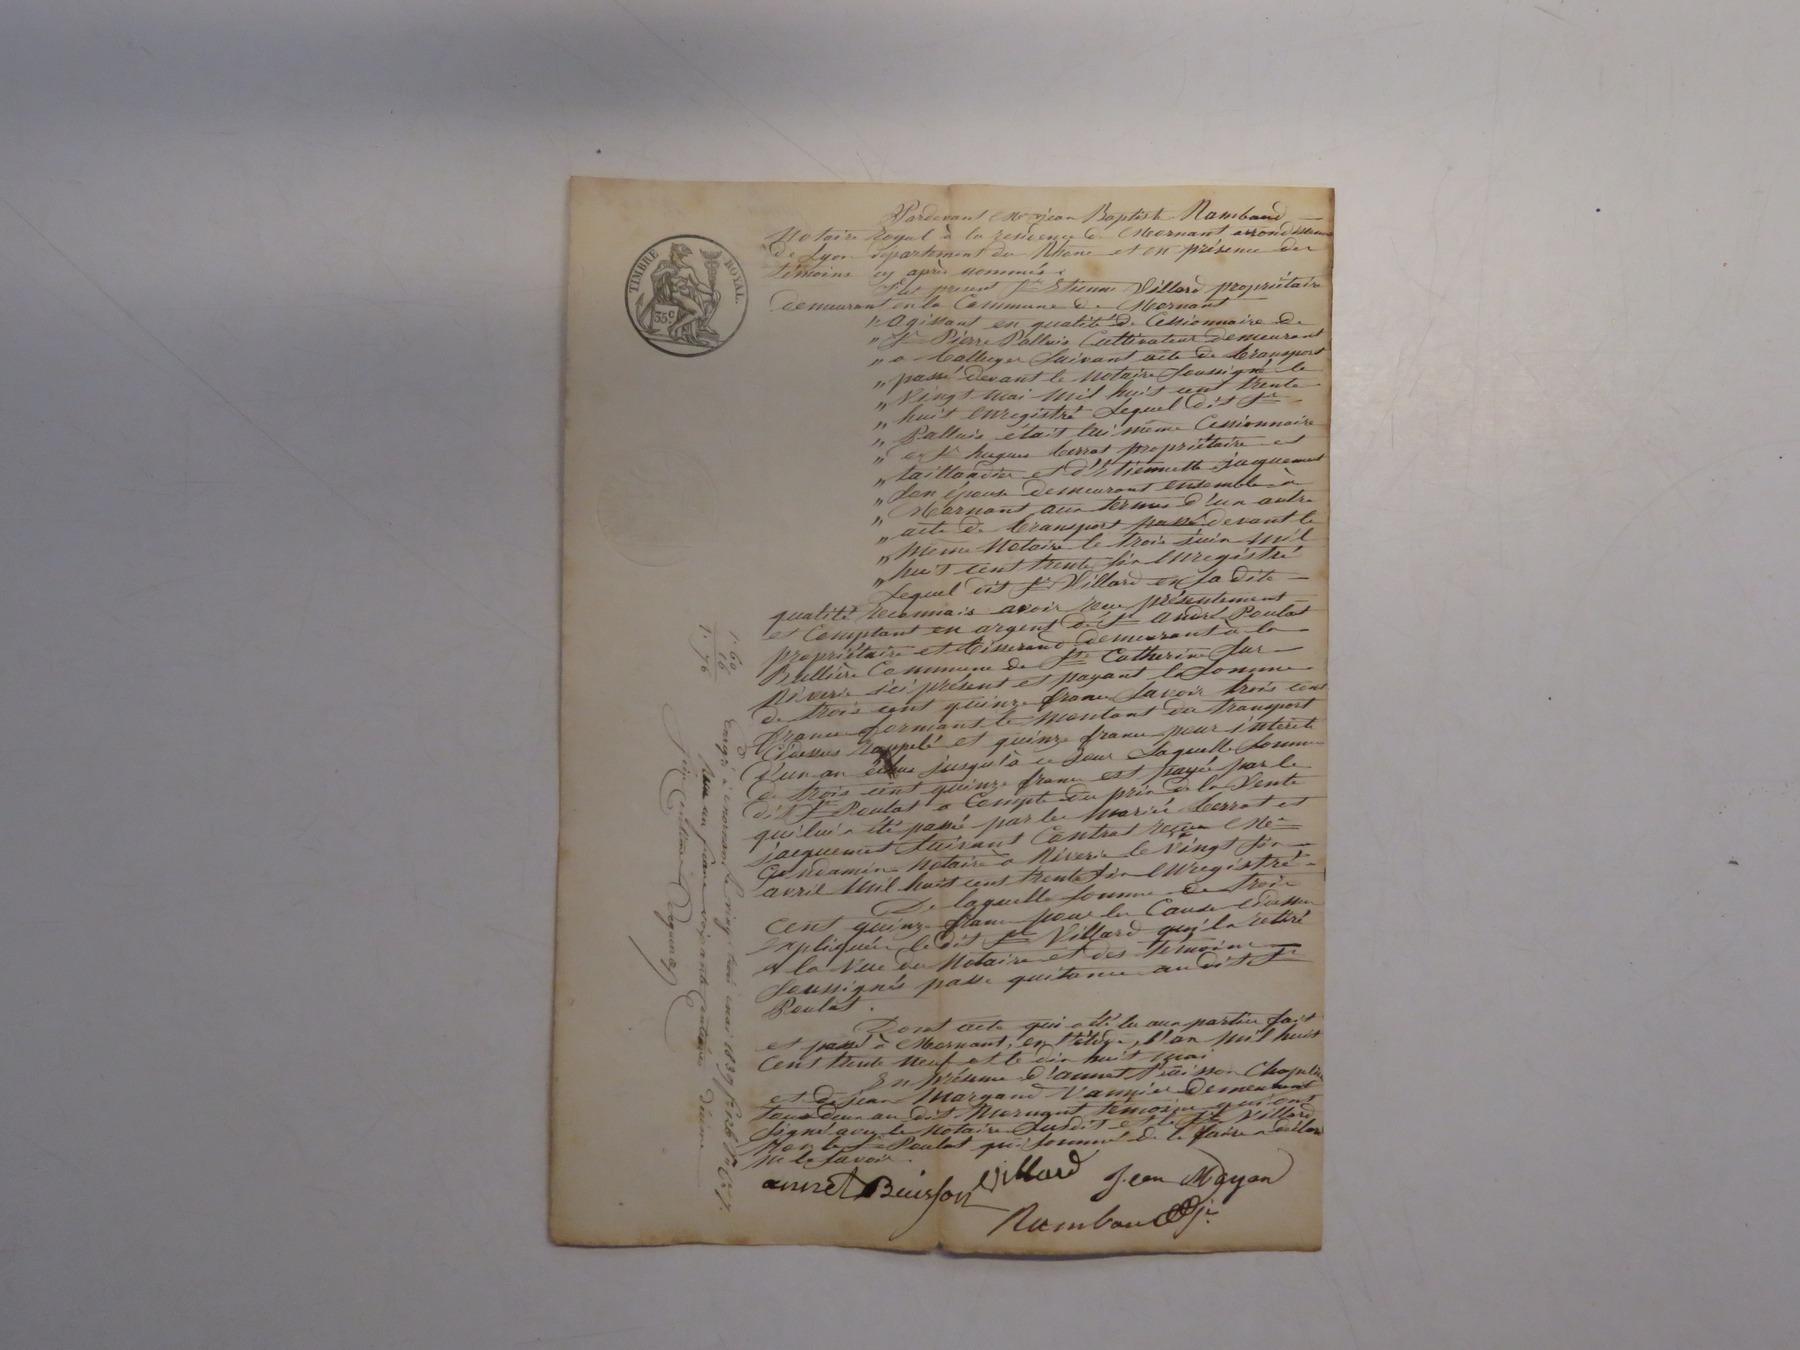 TIMBRE ROYAL.
35c
Pardevant Me jean Baptiste Rambaud
Notaire Royal à la residence de Mornant arrondissement
de Lyon departement du Rhône et en présence des
témoins cy après nommés.
fut present Sr Etienne Villard propriétaire
demeurant en la Commune de Mornant
1º Agissant en qualité de Cessionnaire de
" Sr Pierre Palluis Cultivateur demeurant
" a suivant acte de transport
" passé devant le notaire soussigné le
" vingt mai mil huit cent trente
" huit enregistré Lequel dit Sr
" Palluis était lui même Cessionnaire
" de Sr hugues terrat propriétaire et
" taillandier et d'Etiennette jacquemet
" son épouse demeurant ensemble à
" Mornant aux termes d'un autre
" acte de transport passé devant le
" même Notaire le trois juin mil
" huit cent trente six Enregistré
Lequel dit Sr Villard en sa dite
qualité reconnais avoir reçu présentement
et Comptant en argent de Sr André Poulat
propriétaire et tisserand demeurant à la
Commune de Ste Catherine sur
Riverie ici présent et payant la somme
de trois cent quinze francs savoir trois cent
francs formant le montant du transport
Cidessus rappelé et quinze francs pour intérêts
d'un an échus jusqu'à ce jour Laquelle somme
de trois cent quinze francs est payée par le
dit Sr Poulat a compte du prix de la Vente
qui lui a été passé par les mariés terrat et
jacquemet suivant Contrat reçu Me
Condamin Notaire à Riverie le vingt six
avril mil huit cent trente six Enregistré
De laquelle somme de trois
Cent quinze francs pour les Causes cidessus
expliquées le dit Sr Villard qui l'a retiré
à la vue du Notaire et des témoins
soussignés passe quitance au dit Sr
Poulat.
Dont acte qui a été lu aux parties fait
et passé à Mornant, en l'étude, l'an mil huit
cent trente neuf et le dix huit mai
En présence d'annet Buisson Chapelier
et de jean Vannier demeurant
tous deux au dit Mornant temoins qui ont
signé avec le Notaire susdit et le Sr Villard
Non le Sr Poulat qui sommé de le faire a déclaré
ne le savoir.
annet Buisson Villard Jean Mayan
Rambaud
1. 60
16
1. 76
Enregé à mornant le vingt trois mai 1839 fo 126
Reçu un franc soixante centimes dixième
seize centimes